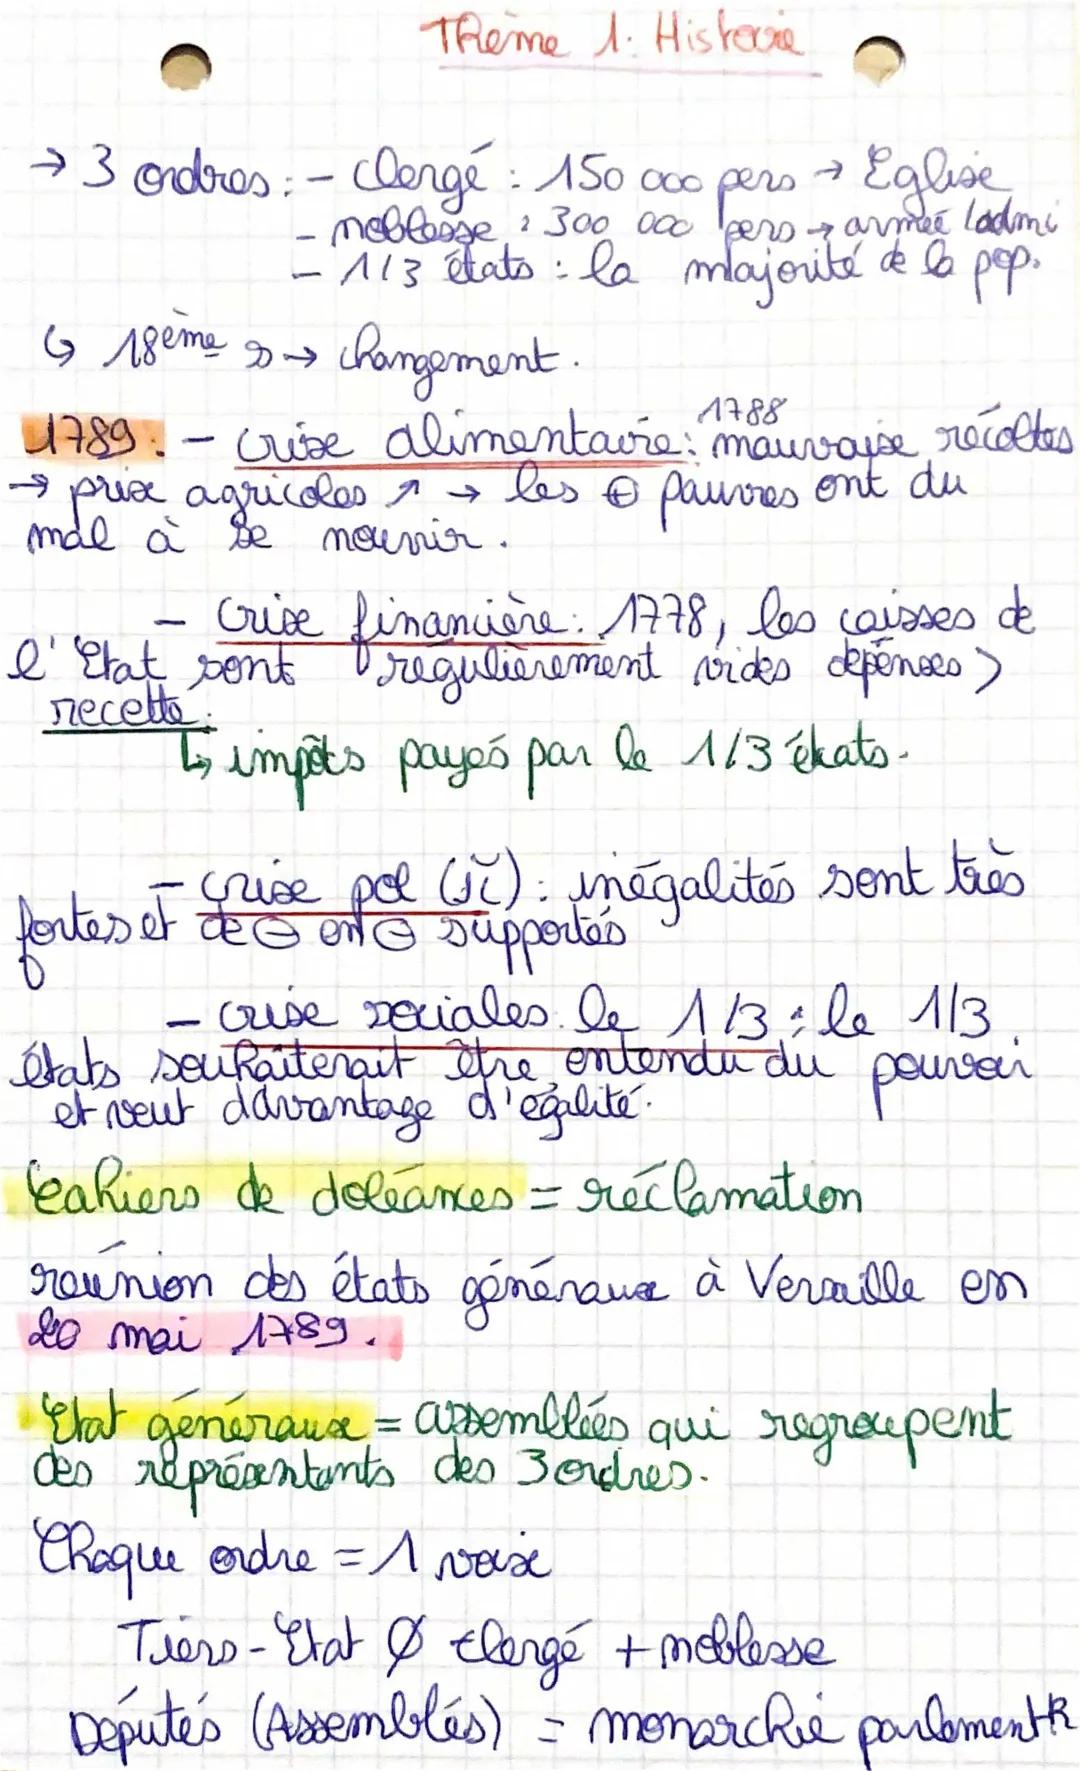 Thème 1: Histoire
→ 3 ordres : - Clergé : 150 000 pers → Eglise
- noblesse : 300 000 pers → armée /admi
- 1/3 états : la majorité de la pop.
↳ 18ème s → changement.
1789 : - crise alimentaire : 1788 mauvaise récoltes
→ prix agricoles ↗ → les ⊕ pauvres ont du
mal à se nourrir.
- Crise financière : 1778, les caisses de
l'Etat sont régulièrement vides dépenses >
recette.
↳ impôts payés par le 1/3 états.
- crise pol : inégalités sont très
fortes et de ⊖ en ⊖ supportés
- crise sociales. le 1/3 : le 1/3
états souhaiterait être entendu du pouvoir
et veut davantage d'égalité.
Cahiers de doléances = réclamation
réunion des états généraux à Versaille en
20 mai 1789.
Etat généraux = assemblées qui regroupent
des représentants des 3 ordres.
Chaque ordre = 1 voix
Tiers-Etat Ø clergé + noblesse
Députés (Assemblés) = monarchie parlement